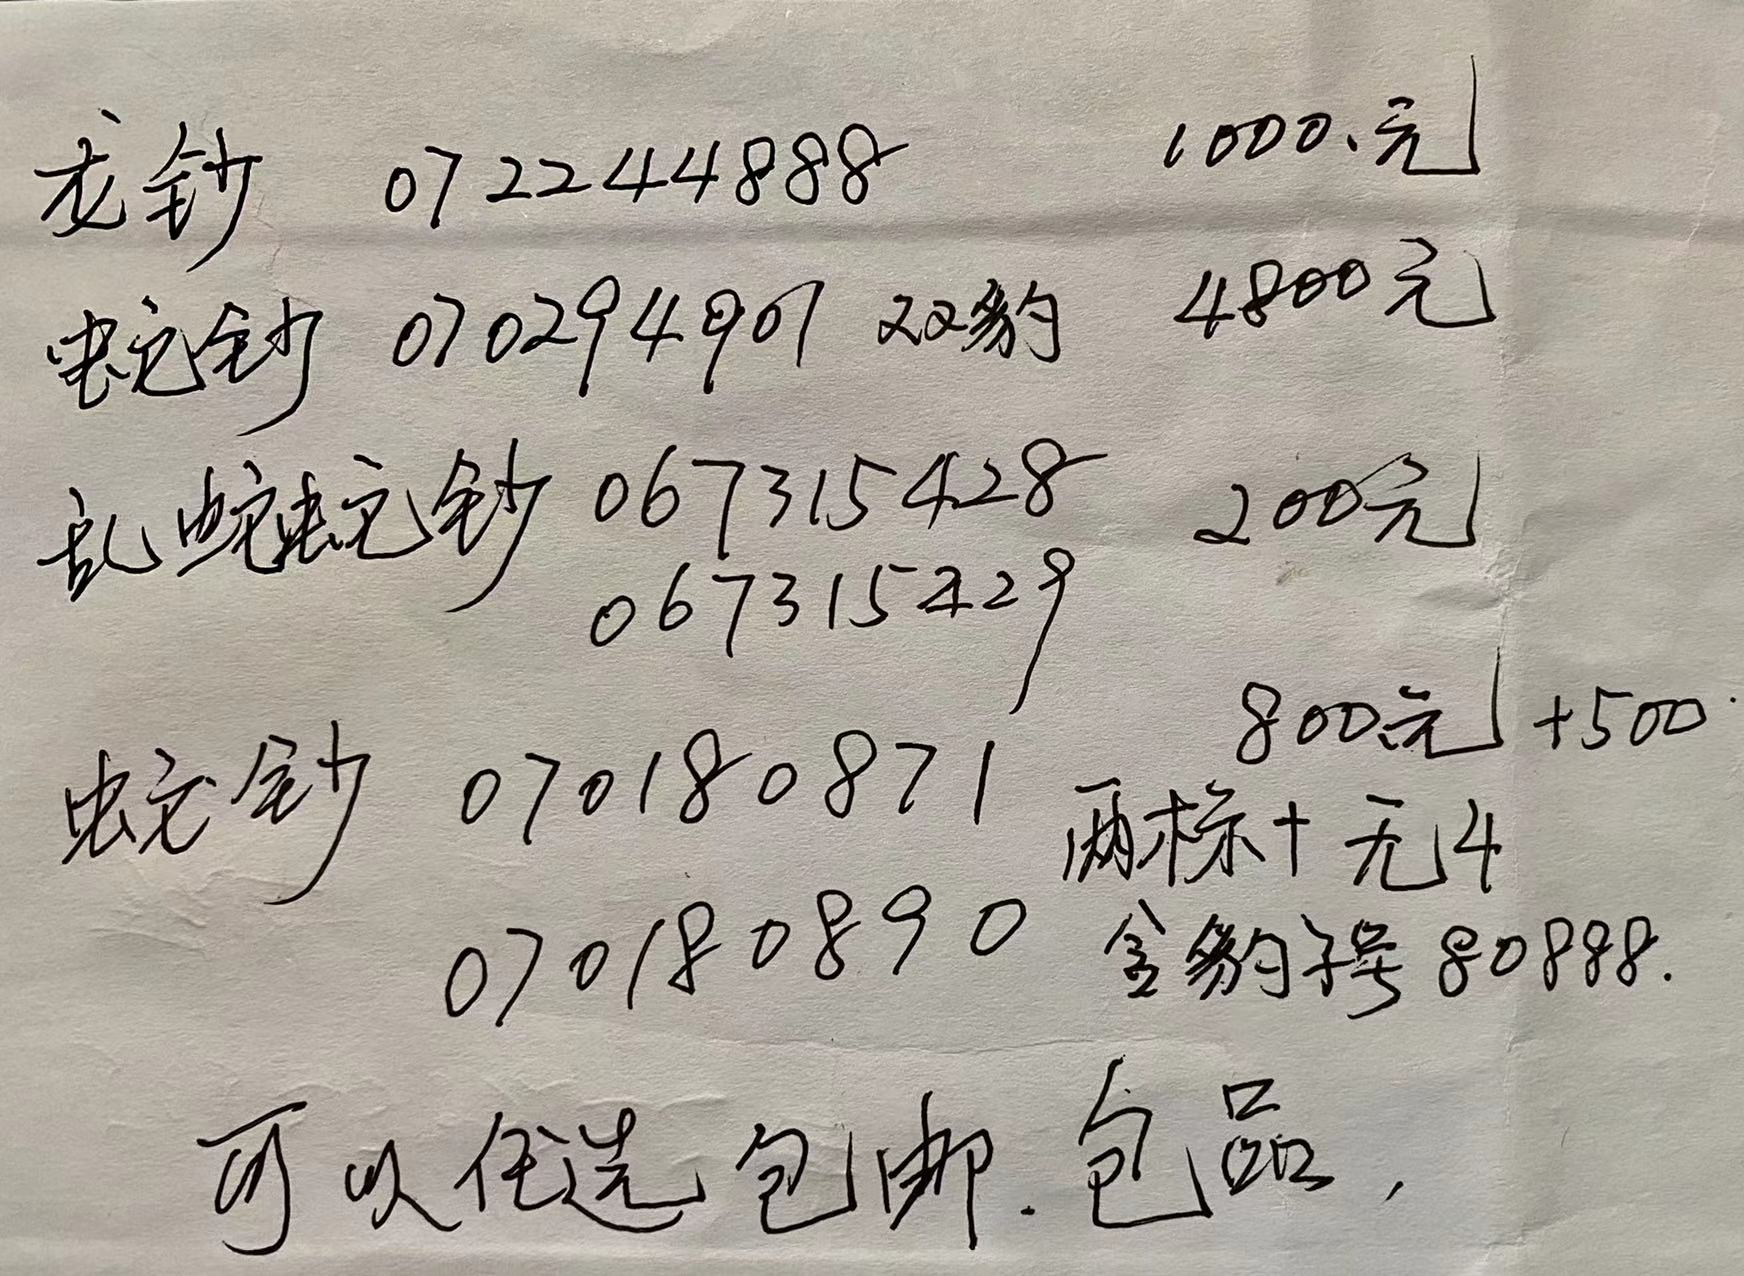 龙钞 072244888 1000.元
蛇钞 070294901 双豹 4800元
乱蛇蛇钞 067315428 200元
067315429
800元+500
蛇钞 070180871 两标十无4
070180890 含豹子号80888.
可以任选包邮.包品,